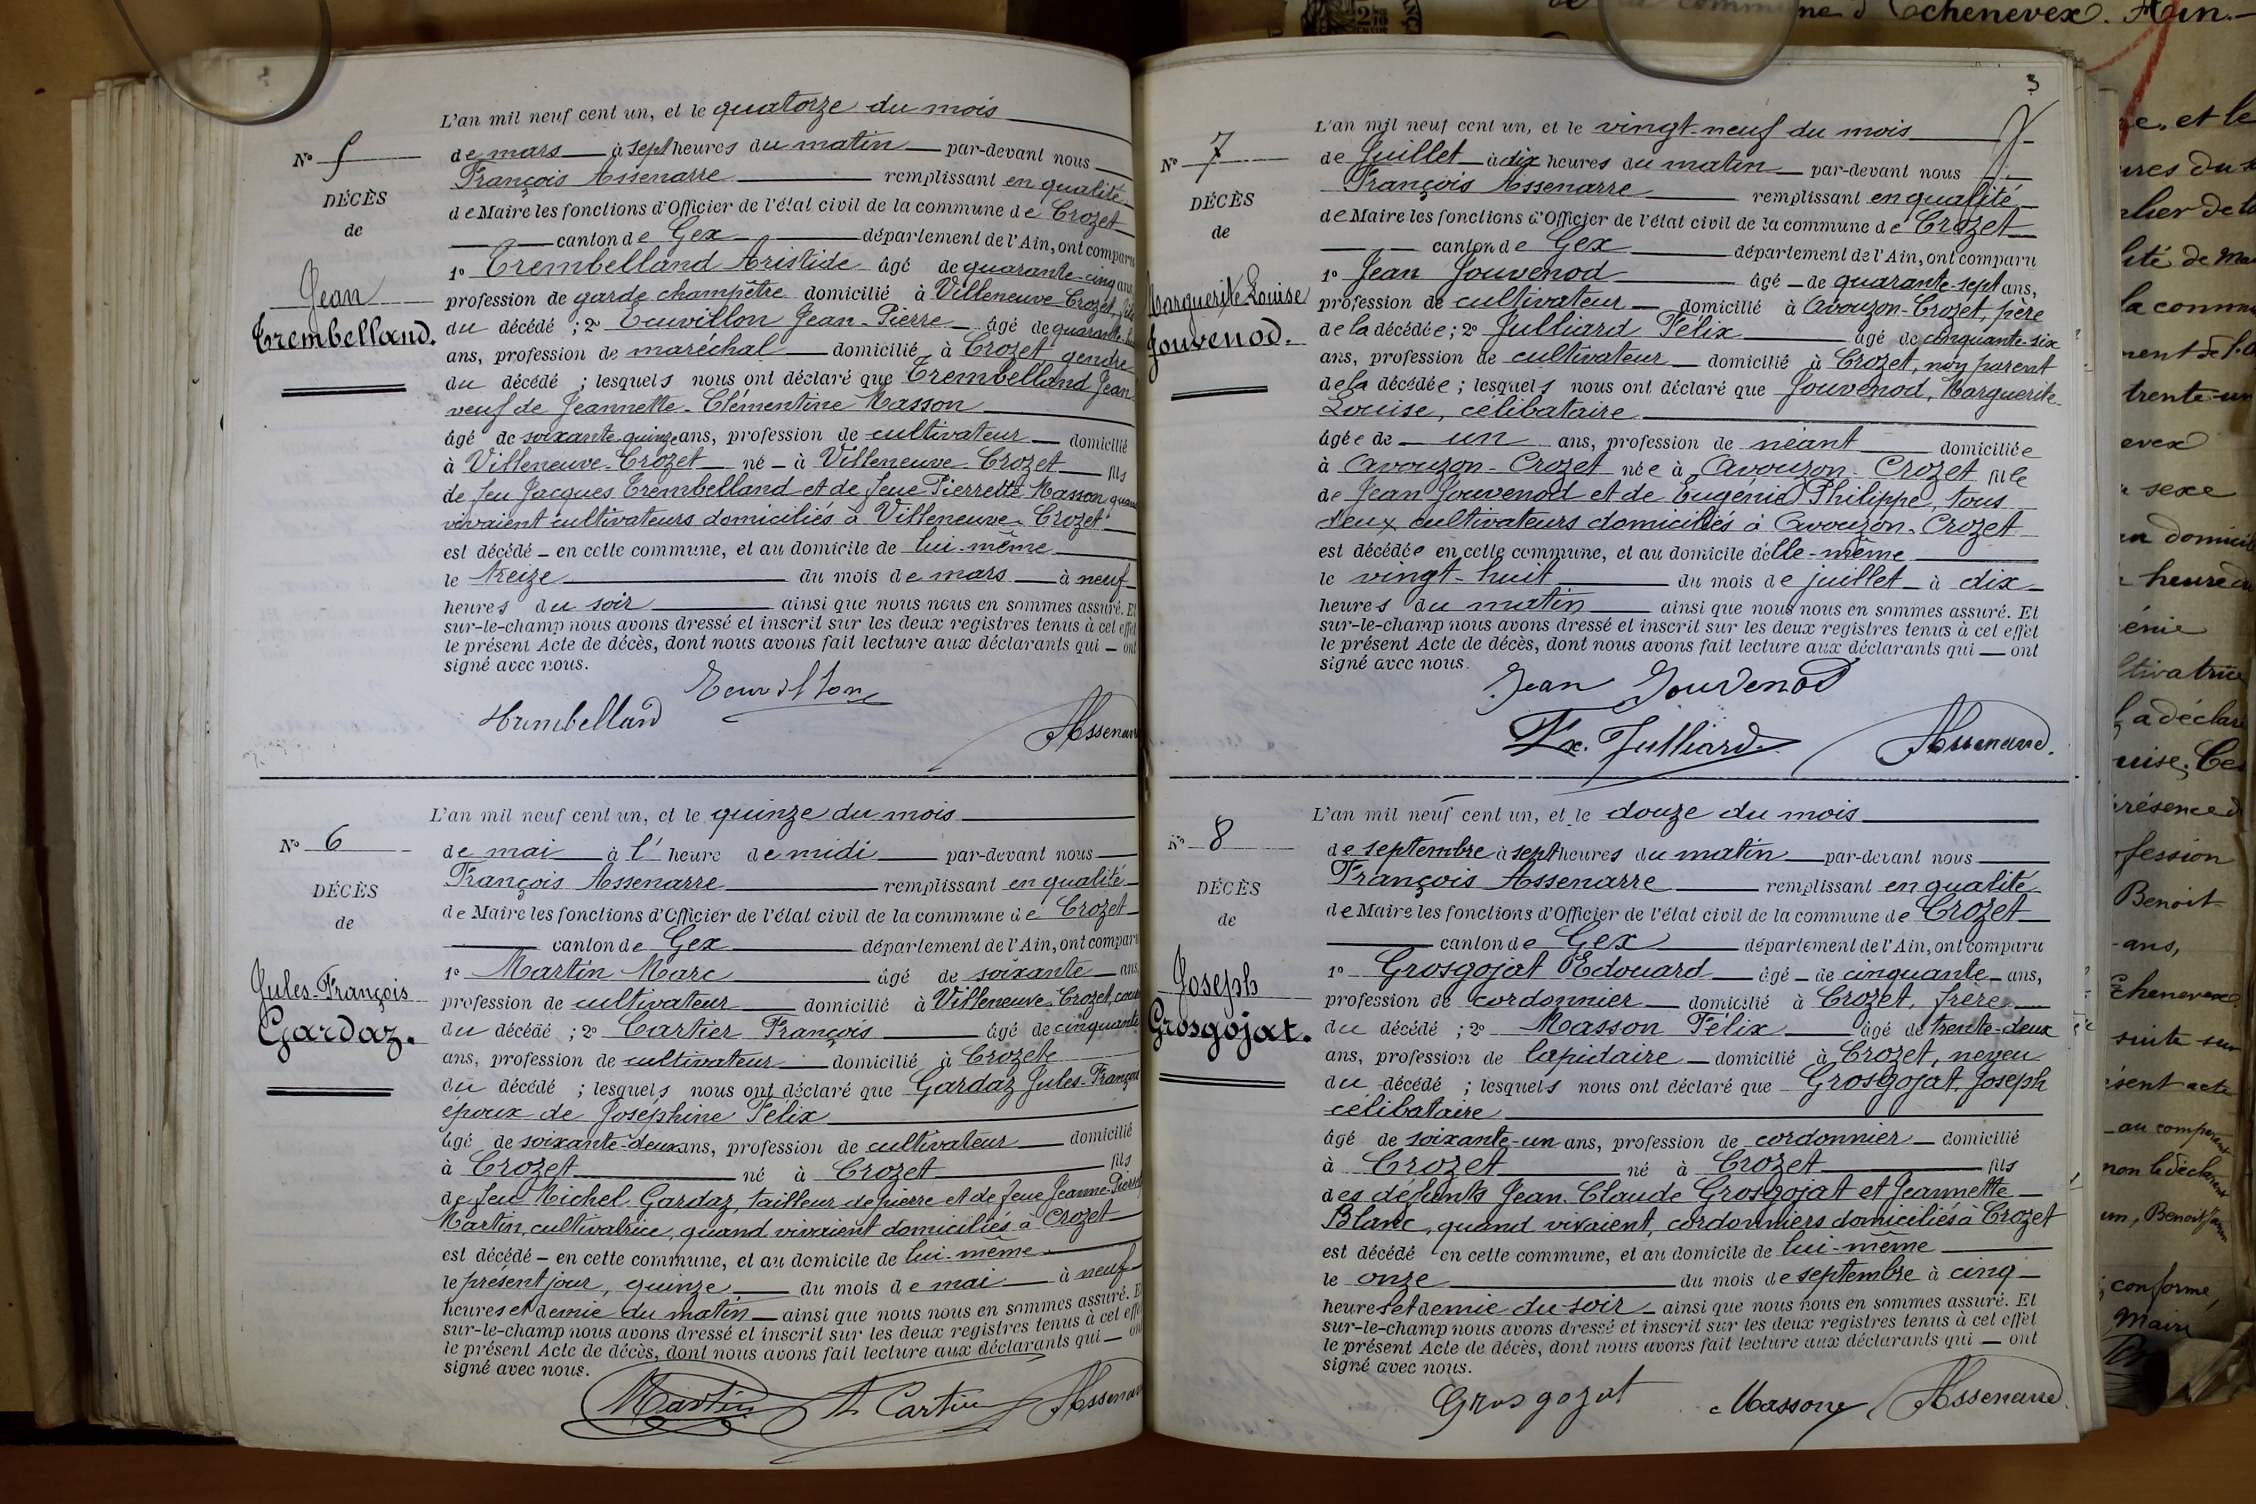 L'an mil neuf cent un, et le quatorze du mois
N° 5
de mars à sept heures du matin par-devant nous
François Assenarre remplissant en qualité
DÉCÈS
de Maire les fonctions d'Officier de l'état civil de la commune de Crozet
de
canton de Gex département de l'Ain, ont comparu
1° Trembelland Aristide âgé de quarante-cinq ans
Jean
profession de garde champêtre domicilié à Villeneuve-Crozet, fils
Trembelland.
du décédé ; 2° Tuvillon Jean-Pierre âgé de quarante
ans, profession de maréchal domicilié à Crozet, gendre
du décédé ; lesquels nous ont déclaré que Trembelland Jean
veuf de Jeannette-Clémentine Masson
âgé de soixante quinze ans, profession de cultivateur domicilié
à Villeneuve-Crozet né à Villeneuve-Crozet fils
de feu Jacques Trembelland et de feue Pierrette Masson quand
vivaient cultivateurs domiciliés à Villeneuve-Crozet
est décédé en cette commune, et au domicile de lui-même
le treize du mois de mars à neuf
heures du soir ainsi que nous nous en sommes assuré. Et
sur-le-champ nous avons dressé et inscrit sur les deux registres tenus à cet effet
le présent Acte de décès, dont nous avons fait lecture aux déclarants qui ont
signé avec nous.
Trembelland
Assenarre
L'an mil neuf cent un, et le quinze du mois
N° 6
de mai à l'heure de midi par-devant nous
François Assenarre remplissant en qualité
DÉCÈS
de Maire les fonctions d'Officier de l'état civil de la commune de Crozet
de
canton de Gex département de l'Ain, ont comparu
1° Martin Marc âgé de soixante ans
Jules-François
profession de cultivateur domicilié à Villeneuve-Crozet, cousin
Gardaz.
du décédé ; 2° Cartier François âgé de cinquante
ans, profession de cultivateur domicilié à Crozet
du décédé ; lesquels nous ont déclaré que Gardaz Jules-François
époux de Joséphine Félix
âgé de soixante-deux ans, profession de cultivateur domicilié
à Crozet né à Crozet fils
de feu Michel Gardaz, tailleur de pierre et de feue Jeanne-Pierrette
Martin, cultivatrice, quand vivaient domiciliés à Crozet
est décédé en cette commune, et au domicile de lui-même
le présent jour, quinze du mois de mai à neuf
heures et demie du matin ainsi que nous nous en sommes assuré. Et
sur-le-champ nous avons dressé et inscrit sur les deux registres tenus à cet effet
le présent Acte de décès, dont nous avons fait lecture aux déclarants qui ont
signé avec nous.
Martin Cartier Assenarre
3
L'an mil neuf cent un, et le vingt-neuf du mois
N° 7
de Juillet à dix heures du matin par-devant nous
François Assenarre remplissant en qualité
DÉCÈS
de Maire les fonctions d'Officier de l'état civil de la commune de Crozet
de
canton de Gex département de l'Ain, ont comparu
1° Jean Jouvenod âgé de quarante-sept ans,
Marguerite Louise
profession de cultivateur domicilié à Avouzon-Crozet, père
Jouvenod.
de la décédée ; 2° Julliard Félix âgé de cinquante-six
ans, profession de cultivateur domicilié à Crozet, non parent
de la décédée ; lesquels nous ont déclaré que Jouvenod, Marguerite-
Louise, célibataire
âgée de un ans, profession de néant domiciliée
à Avouzon-Crozet née à Avouzon-Crozet fille
de Jean Jouvenod et de Eugénie Philippe, tous
deux cultivateurs domiciliés à Avouzon-Crozet
est décédée en cette commune, et au domicile d'elle-même
le vingt-huit du mois de juillet à dix
heures du matin ainsi que nous nous en sommes assuré. Et
sur-le-champ nous avons dressé et inscrit sur les deux registres tenus à cet effet
le présent Acte de décès, dont nous avons fait lecture aux déclarants qui ont
signé avec nous.
Jean Jouvenod
Fx. Julliard Assenarre.
L'an mil neuf cent un, et le douze du mois
N° 8
de septembre à sept heures du matin par-devant nous
François Assenarre remplissant en qualité
DÉCÈS
de Maire les fonctions d'Officier de l'état civil de la commune de Crozet
de
canton de Gex département de l'Ain, ont comparu
1° Grosgojat Edouard âgé de cinquante ans,
Joseph
profession de cordonnier domicilié à Crozet, frère
Grosgojat.
du décédé ; 2° Masson Félix âgé de trente-deux
ans, profession de lapidaire domicilié à Crozet, neveu
du décédé ; lesquels nous ont déclaré que Grosgojat, Joseph
célibataire
âgé de soixante-un ans, profession de cordonnier domicilié
à Crozet né à Crozet fils
des défunts Jean-Claude Grosgojat et Jeannette
Blanc, quand vivaient, cordonniers domiciliés à Crozet
est décédé en cette commune, et au domicile de lui-même
le onze du mois de septembre à cinq
heures et demie du soir ainsi que nous nous en sommes assuré. Et
sur-le-champ nous avons dressé et inscrit sur les deux registres tenus à cet effet
le présent Acte de décès, dont nous avons fait lecture aux déclarants qui ont
signé avec nous.
Grosgojat Masson Assenarre
commune d'Echenevex. Ain.
et le
la comm
trente-un
evex
sexe
domicile
heure du
cultivatrice
a déclaré
présence d
profession
Benoit
ans,
Echenevex
suite sur
présent acte
au comparant
non le déclarant
Benoit
conforme,
Maire